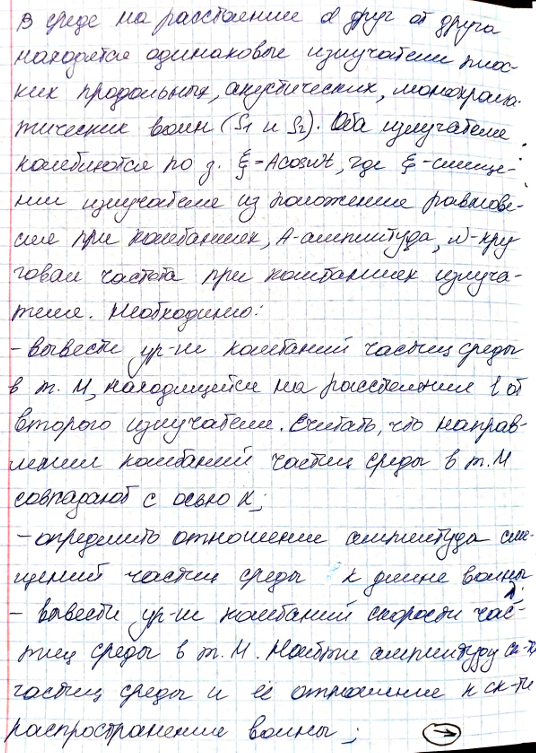 В среде на расстоянии d друг от друга
находятся одинаковые излучатели плос-
ких продольных, акустических, монохрома-
тических волн (S1 и S2). Оба излучателя
колеблются по з. ξ=Acosωt, где ξ-смеще-
ние излучателя из положения равнове-
сия при колебаниях, А-амплитуда, ω-кру
говая частота при колебаниях излуча-
теля. Необходимо:
- вывести ур-ие колебаний частиц среды
в т. М, находящейся на расстоянии l от
второго излучателя. Считать, что направ-
ления колебаний частиц среды в т. М
совпадают с осью х;
- определить отношение амплитуда сме-
щений частиц среды к длине волны
- вывести ур-ие колебаний скорости час-
тиц среды в т. М. Найти амплитуду ск-ти
частиц среды и её отношение к ск-ти
распространения волны;